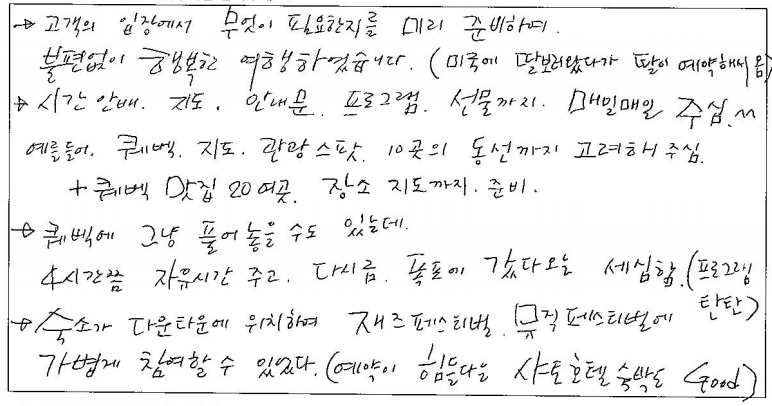 → 고객의 입장에서 무엇이 필요한지를 미리 준비하여.
불편없이 행복한 여행하였습니다. (미국에 딸보러왔다가 딸이 예약해서 옴)
→ 시간안배. 지도. 안내문. 프로그램. 선물까지. 매일매일 주심.
예를들어. 퀘벡. 지도. 관광스팟. 10곳의 동선까지 고려해 주심.
+ 퀘벡 맛집 20여곳. 장소 지도까지. 준비.
→ 퀘벡에 그냥 풀어놓을 수도 있는데.
4시간쯤 자유시간 주고. 다시 폭포에 갔다오는 세심함. (프로그램 탄탄)
→ 숙소가 다운타운에 위치하여 재즈페스티벌. 뮤직페스티벌에
가볍게 참여할 수 있었다. (예약이 힘들다는 샤토호텔 숙박도 Good)